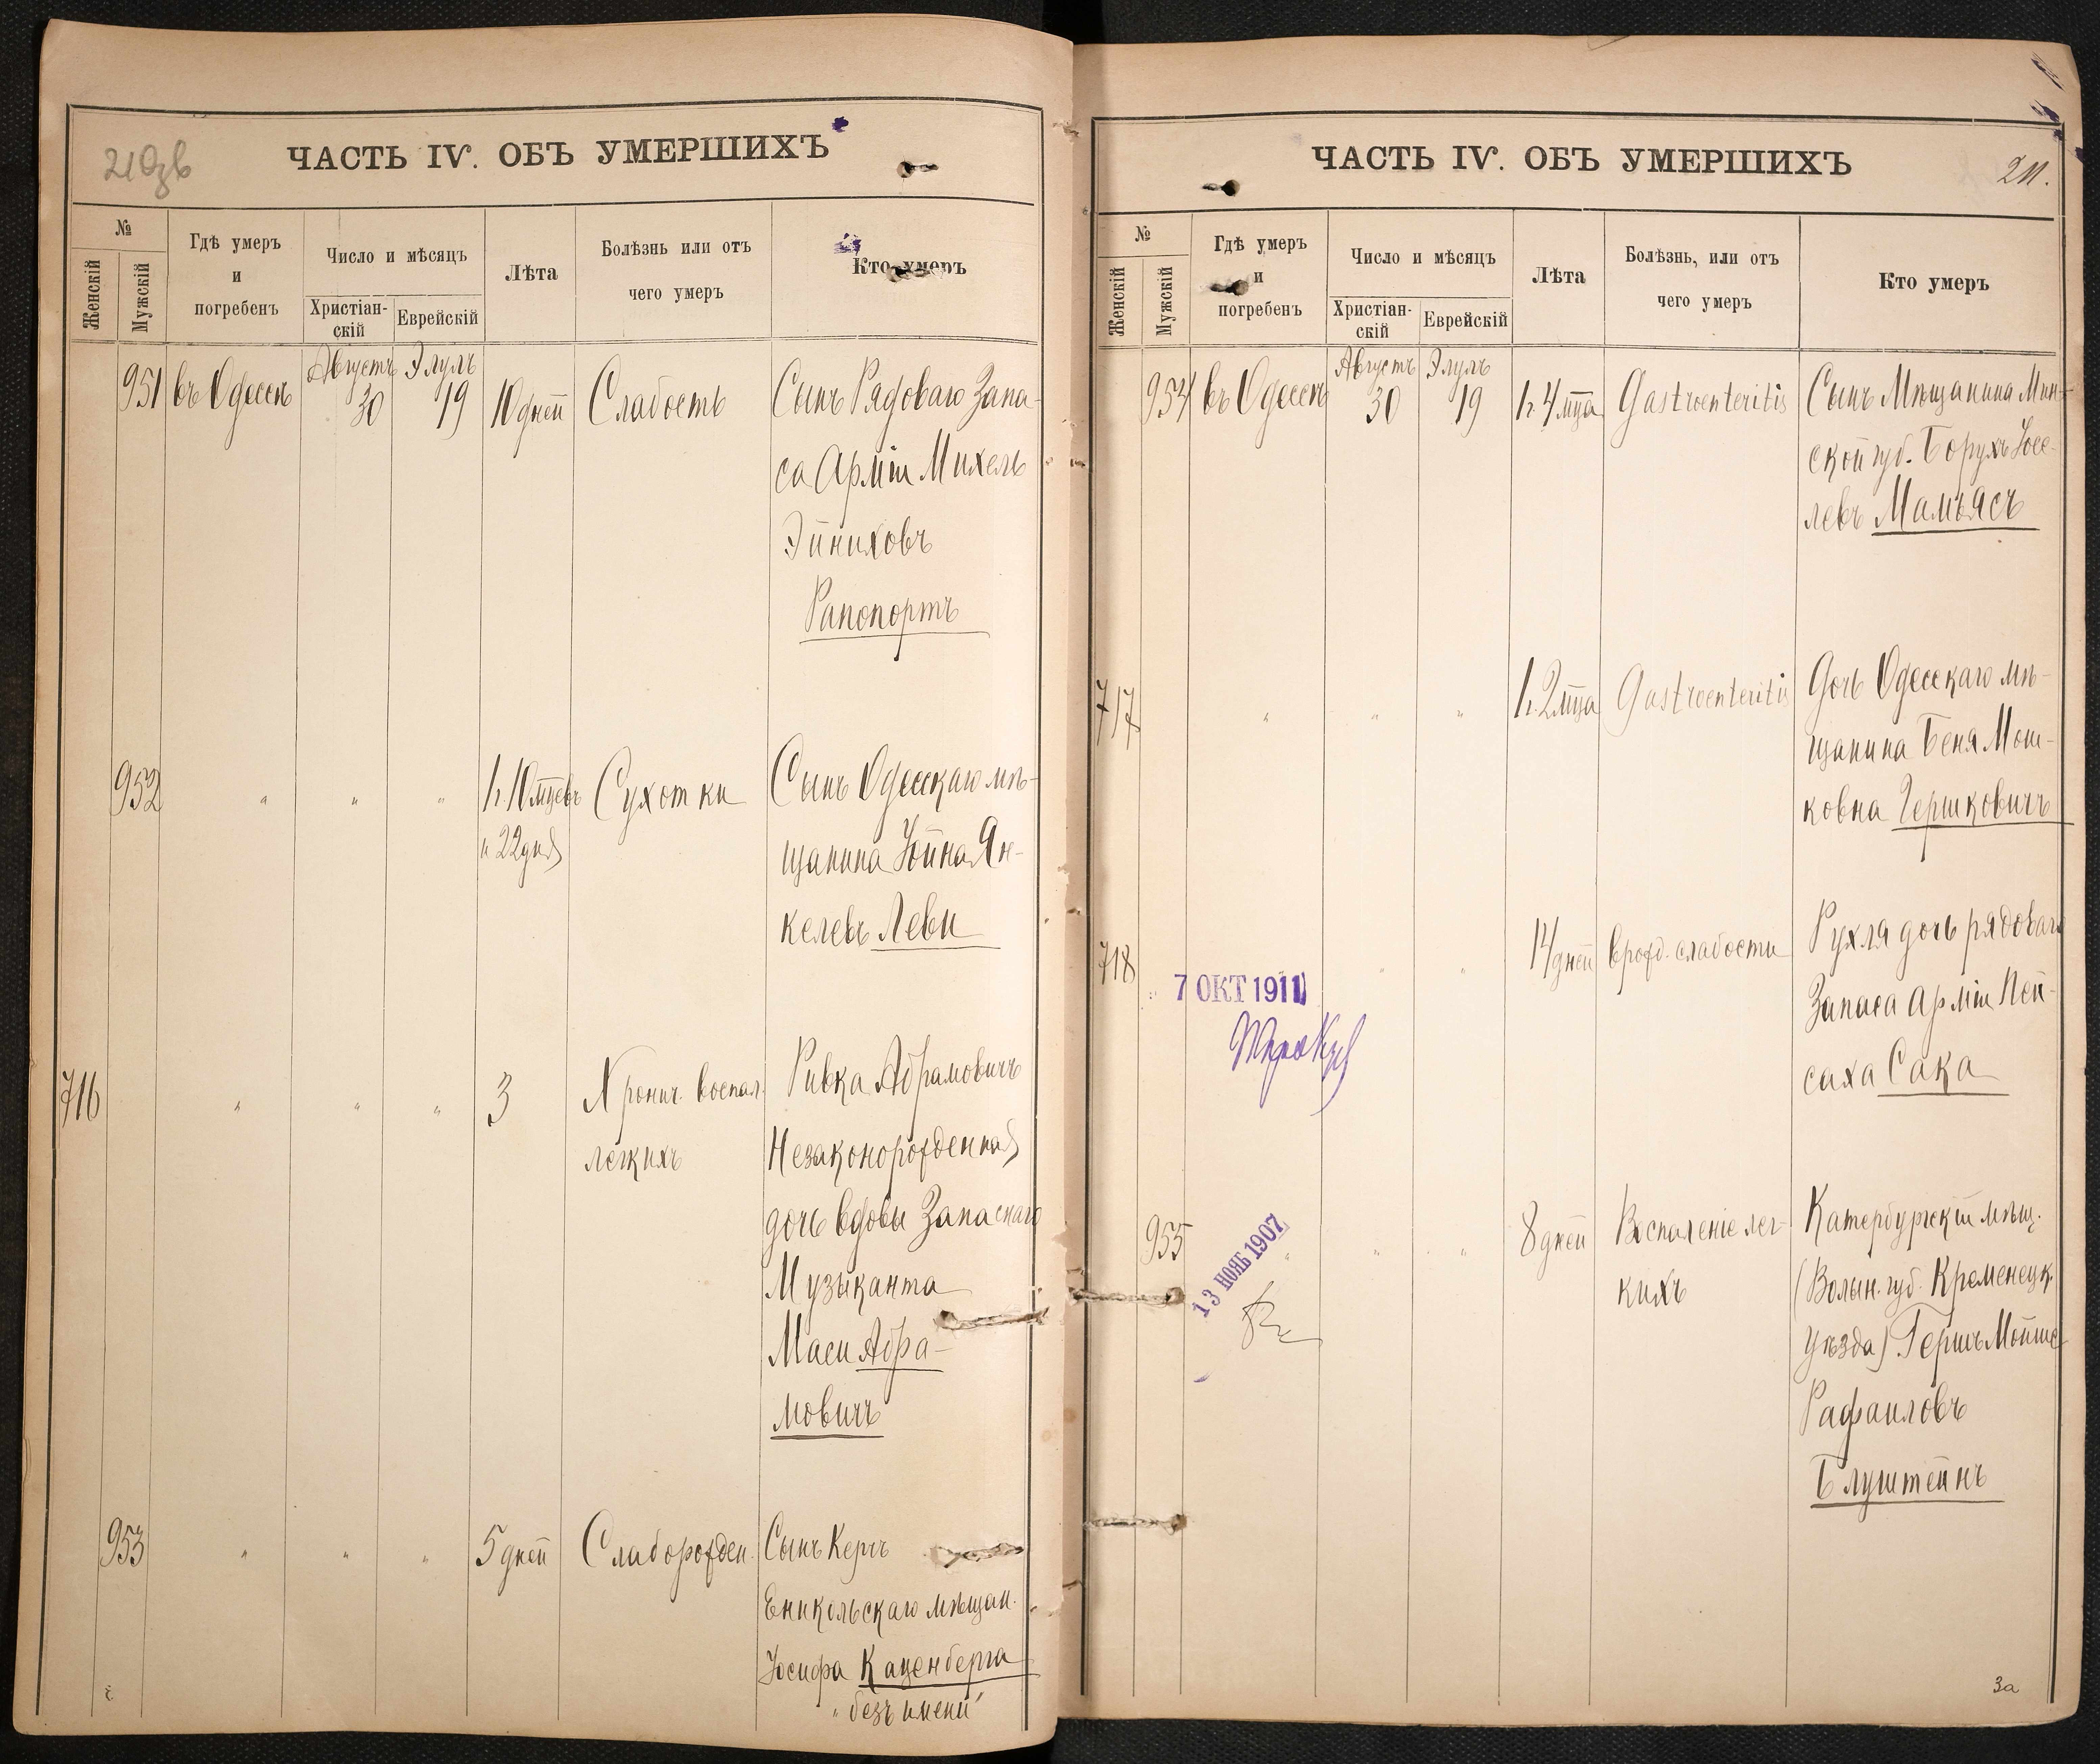 210зв
ЧАСТЬ IV. ОБЪ УМЕРШИХЪ
№
Женскій
Мужскій
Гдѣ умеръ
и
погребенъ
Число и мѣсяцъ
Христіан-
скій
Еврейскій
Лѣта
Болѣзнь или отъ
чего умеръ
Кто умеръ
Августъ Элулъ
951 въ Одессѣ 30 19 10 дней Слабость Сынъ Рядоваго Запа-
са Арміи Михель
Эйниховъ
Рапопортъ
952 " " " 1 г. 10 мцевъ Сухотки Сынъ Одесскаго мѣ-
и 22 дня щанина Іойна Ян-
келевъ Леви
716 " " " 3 Хронич. воспал. Ривка Абрамовичъ
легкихъ Незаконорожденная
дочь вдовы Запаснаго
Музыканта
Маси Абра-
мовичъ
953 " " " 5 дней Слаборожден. Сынъ Керчъ
Еникольскаго мѣщан.
Іосифа Каценберга
"безъ имени"
ЧАСТЬ IV. ОБЪ УМЕРШИХЪ
211.
№
Женскій
Мужскій
Гдѣ умеръ
и
погребенъ
Число и мѣсяцъ
Христіан-
скій
Еврейскій
Лѣта
Болѣзнь, или отъ
чего умеръ
Кто умеръ
Августъ Элулъ
954 въ Одессѣ 30 19 1 г. 4 мца Gastroenteritis Сынъ Мѣщанина Мин-
ской губ. Борухъ Іосе-
левъ Мамъясъ
717 " " " 1 г. 2 мца Gastroenteritis Дочь Одесскаго мѣ-
щанина Беня Мош-
ковна Гершковичъ
718 " " 14 дней врожд. слабости Рухля дочь рядоваго
Запаса Арміи Пей-
саха Сака
7 ОКТ 1911
955 " " " 8 дней Воспаленіе лег- Катербургскій мѣщ.
кихъ (Волын. губ. Кременецк.
Уѣзда) Гершъ Мойше
Рафаиловъ
Блуштейнъ
13 НОЯБ 1907
3а